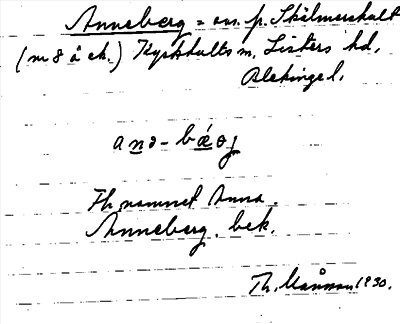 Anneberg = om. p. Skälmershult
(nr 8 å ek.) Kyrkhults sn, Listers hd,
Blekinge l.
anə-bǽrj
Fh namnet Anna.
Anneberg. bek.
Th. Månsson 1930.